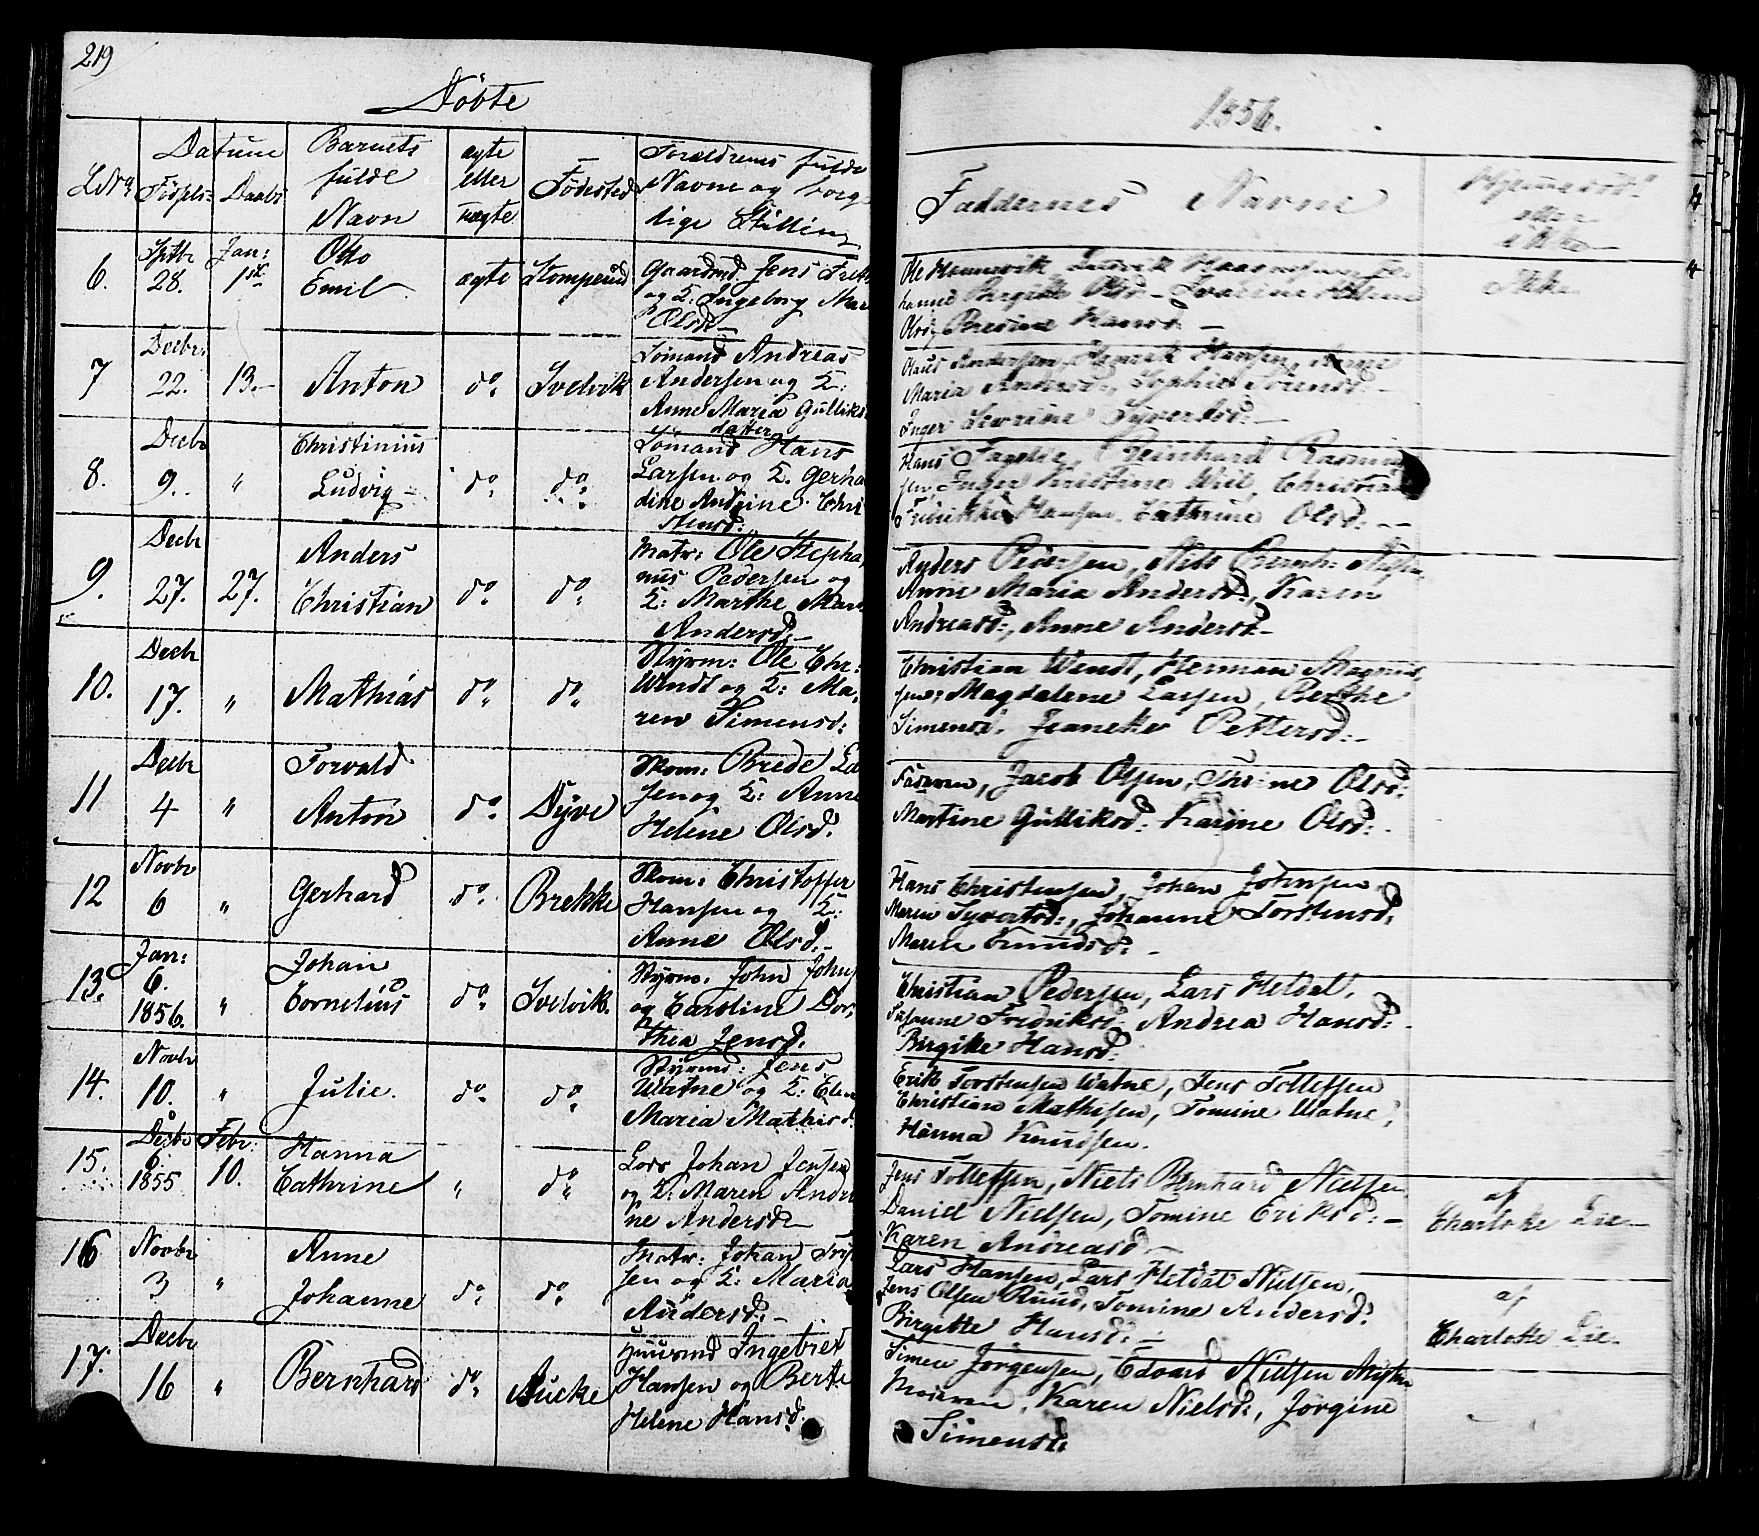 219
Döbte
1856.
LNr
Datum
Födsels=
Daabs
Barnets
fulde
Navn
ægte
eller
uægte
Födested
Forældrenes fulde
Navne og borg
lige Stilling
Faddernes Navne
Hjemmedöbt
eller
ikke
6.
Septb
28.
Jan:
1ste
Otto
Emil
ægte
Stomperud
Gaardmd Jens
og K. Ingeborg Mar
Olsd
Birgitte Olsd
Olsd, Hansd: —
Ikke
7
Decbr:
22.
13.-
Anton
do
Svelvik
Sömand Andreas
Andersen og K:
Anne Maria Gulliks
datter
Olaus Andersen, Henrik Hansen, Anne
Maria Andersd:, Sophie Sörensd: -
Inger Severine Syvertsd: -
8.
Decbr
9.
"
Christinius
Ludvig -
do
do
Sömand Hans
Larsen og K. Gerha
dine Andrine Chri
stensd:
Hans Fagelie, Reinhard Rasmus
sen, Inger Christine Wiil, Christian
Fredrikke Hansen, Cathrine Olsd: -
9.
Decbr
27.
27.
Anders
Christian
do
do
Matr: Ole Stepha
nus Pedersen og
K: Marthe Mar
Andersd: -
Anders Pedersen, Nils Bernh: Nilsen
Anne Maria Andersd:, Karen
Andreasd:, Anne Andersd. -
10.
Decbr
17.
"
Mathias
do
do
Styrm: Ole Chr:
Wendt og K: Ma,
ren Simensd:
Christian Wendt, Herman Magnus
sen, Magdalene Larsen, Berthe
Simensd. Jeaneke Pettersd: -
11
Decbr
4
"
Torvald
Anton
do
Dyve
Skom: Brede La
sen og K: Anne
Helene Olsd.
Faderen, Jacob Olsen, Thrine Olsd:
Martine Gulliksd: Karine Olsd: -
12
Novbr
6
"
Gerhard
do
Brekke
Skom: Christoffer
Hansen og K:
Anne Olsd: -
Hans Christensen, Johan Johnsen,
Maren Syvertsd:, Johanne Torstensd:
Maren Knudsd: -
13.
Jan:
6.
1856.
"
Johan
Cornelius
do
Svelvik.
Styrm. John Johns
og Caroline Dor,
thea Jensd.
Christian Pedersen, Lars Heldal,
Susanne Fredriksd: Andrea Hansd: -
Birgitte Hansd:
14.
Novbr
10.
"
Julie.
do
do
Styrmd: Jens
Watne og K: Elen
Maria Mathisd:
Erik Torstensen Watne, Jens Tollefsen
Christian Mathisen, Tomine Watne,
Hanna Knudsen.
15.
Decbr
6
1855
Febr:
10.
Hanna
Cathrine
"
do
Lods Johan Jensen
og K: Maren Andri
ne Andersd -
Jens Tollefsen, Niels Bernhard Nielsen
Daniel Nielsen, Tomine Eriksd: -
Karen Andreasd -
af
Charlotte Lie -
16
Novbr
3
"
Anne
Johanne
do
do
Matr: Johan
sen og K: Maria
Andersd: -
Lars Hansen, Lars Heldal Nielsen,
Jens Olsen Ruud, Tomine Andersd:
Birgitte Hansd: -
af
Charlotte Lie.
17.
Decbr
16
"
Bernhard
do
Aucke
Huusmd Ingebret
Hansen og Berte
Helene Hansd.
Simen Jörgensen, Edvard Nielsen
Moderen, Karen Nielsd:, Jörgine
Simensd: